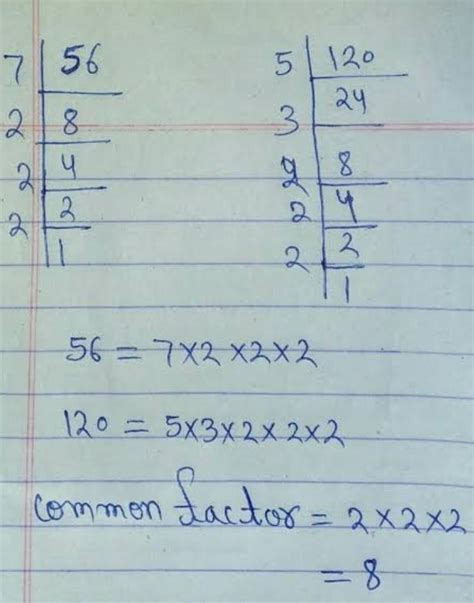 7 | 56
2 | 8
2 | 4
2 | 2
1
5 | 120
3 | 24
2 | 8
2 | 4
2 | 2
1
56 = 7×2×2×2
120 = 5×3×2×2×2
common factor = 2×2×2
= 8